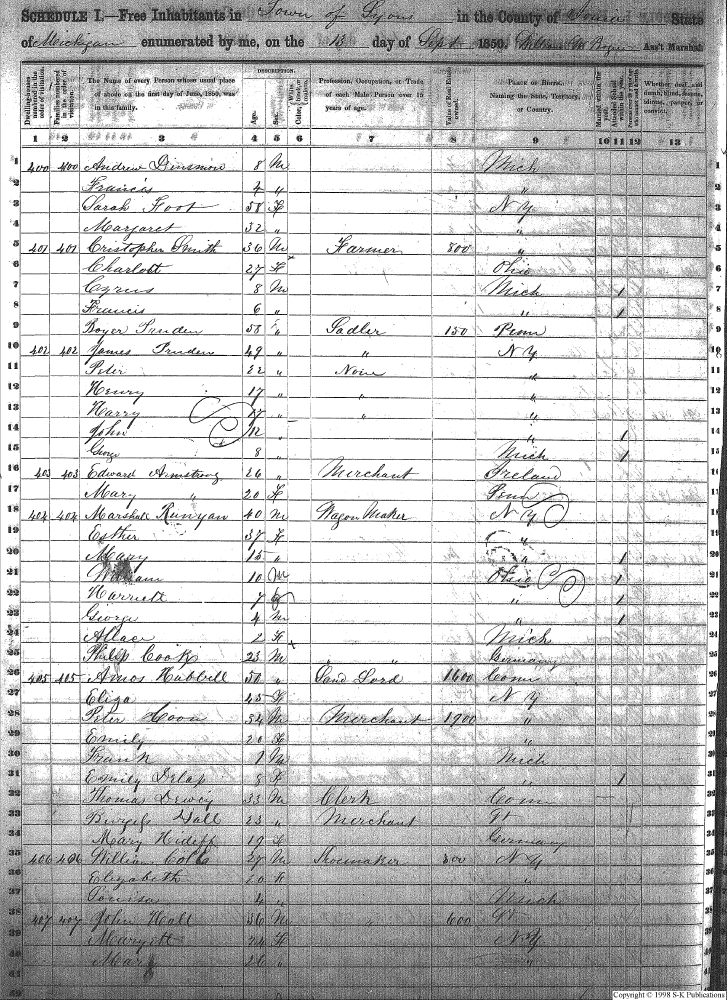 SCHEDULE I.—Free Inhabitants in Town of Lyons in the County of Ionia State
of Michigan enumerated by me, on the 13 day of Sept 1850. Ass't Marshal
DESCRIPTION.
Dwelling-houses numbered in the order of visitation.
Families numbered in the order of visitation.
The Name of every Person whose usual place of abode on the first day of June, 1850, was in this family.
Age.
Sex.
Profession, Occupation, or Trade of each Male Person over 15 years of age.
Value of Real Estate owned.
PLACE OF BIRTH. Naming the State, Territory, or Country.
Married within the year.
Attended School within the year.
Whether deaf and dumb, blind, insane, idiotic, pauper, or convict.
1 2 3 4 5 6 7 8 9 10 11 12 13
1 400 400 Andrew Dinsmon 8 M Mich 1
2 Francis 4 " " 2
3 Sarah Foot 58 F N Y 3
4 Margaret 32 " " 4
5 401 401 Cristopher Smith 36 M Farmer 800 " 5
6 Charlott 27 F Ohio 6
7 Cyrus 8 M Mich 1 7
8 Francis 6 " " 1 8
9 Boyer Pruden 58 " Sadler 150 Penn 9
10 402 402 James Pruden 49 " " N Y 10
11 Peter 22 " None " 11
12 Henry 17 " " " 12
13 Harry 17 " " " 13
14 John 12 " " 1 14
15 George 8 " Mich 1 15
16 403 403 Edward Armstrong 26 " Merchant Ireland 16
17 Mary " 20 F Penn 17
18 404 404 Marshall Runyan 40 M Wagon Maker N Y 18
19 Esther 37 F " 19
20 Mary 15 " " 1 20
21 William 10 M Ohio 1 21
22 Harriett 7 F " 1 22
23 George 4 M " 1 23
24 2 F Mich 24
25 Philip Cook 23 M " " Germany 25
26 405 405 Amos Hubbell 50 " Land Lord 1600 Conn 26
27 Eliza 45 F N Y 27
28 Peter Coon 32 M Merchant 1900 " 28
29 Emily 20 F " 29
30 Frank 1 M Mich 30
31 Emily Delap 8 F " 1 31
32 Thomas Dewey 33 M Clerk Conn 32
33 Hall 23 " Merchant Vt 33
34 Mary 19 F Germany 34
35 406 406 William Cobb 27 M Shoemaker 300 N Y 35
36 Elizabeth 20 F " 36
37 Louisa 4 " Mich 37
38 407 407 John Holt 56 M " 600 Vt 38
39 F N Y 39
40 Mary 26 " " 40
Copyright © 1998 S-K Publications